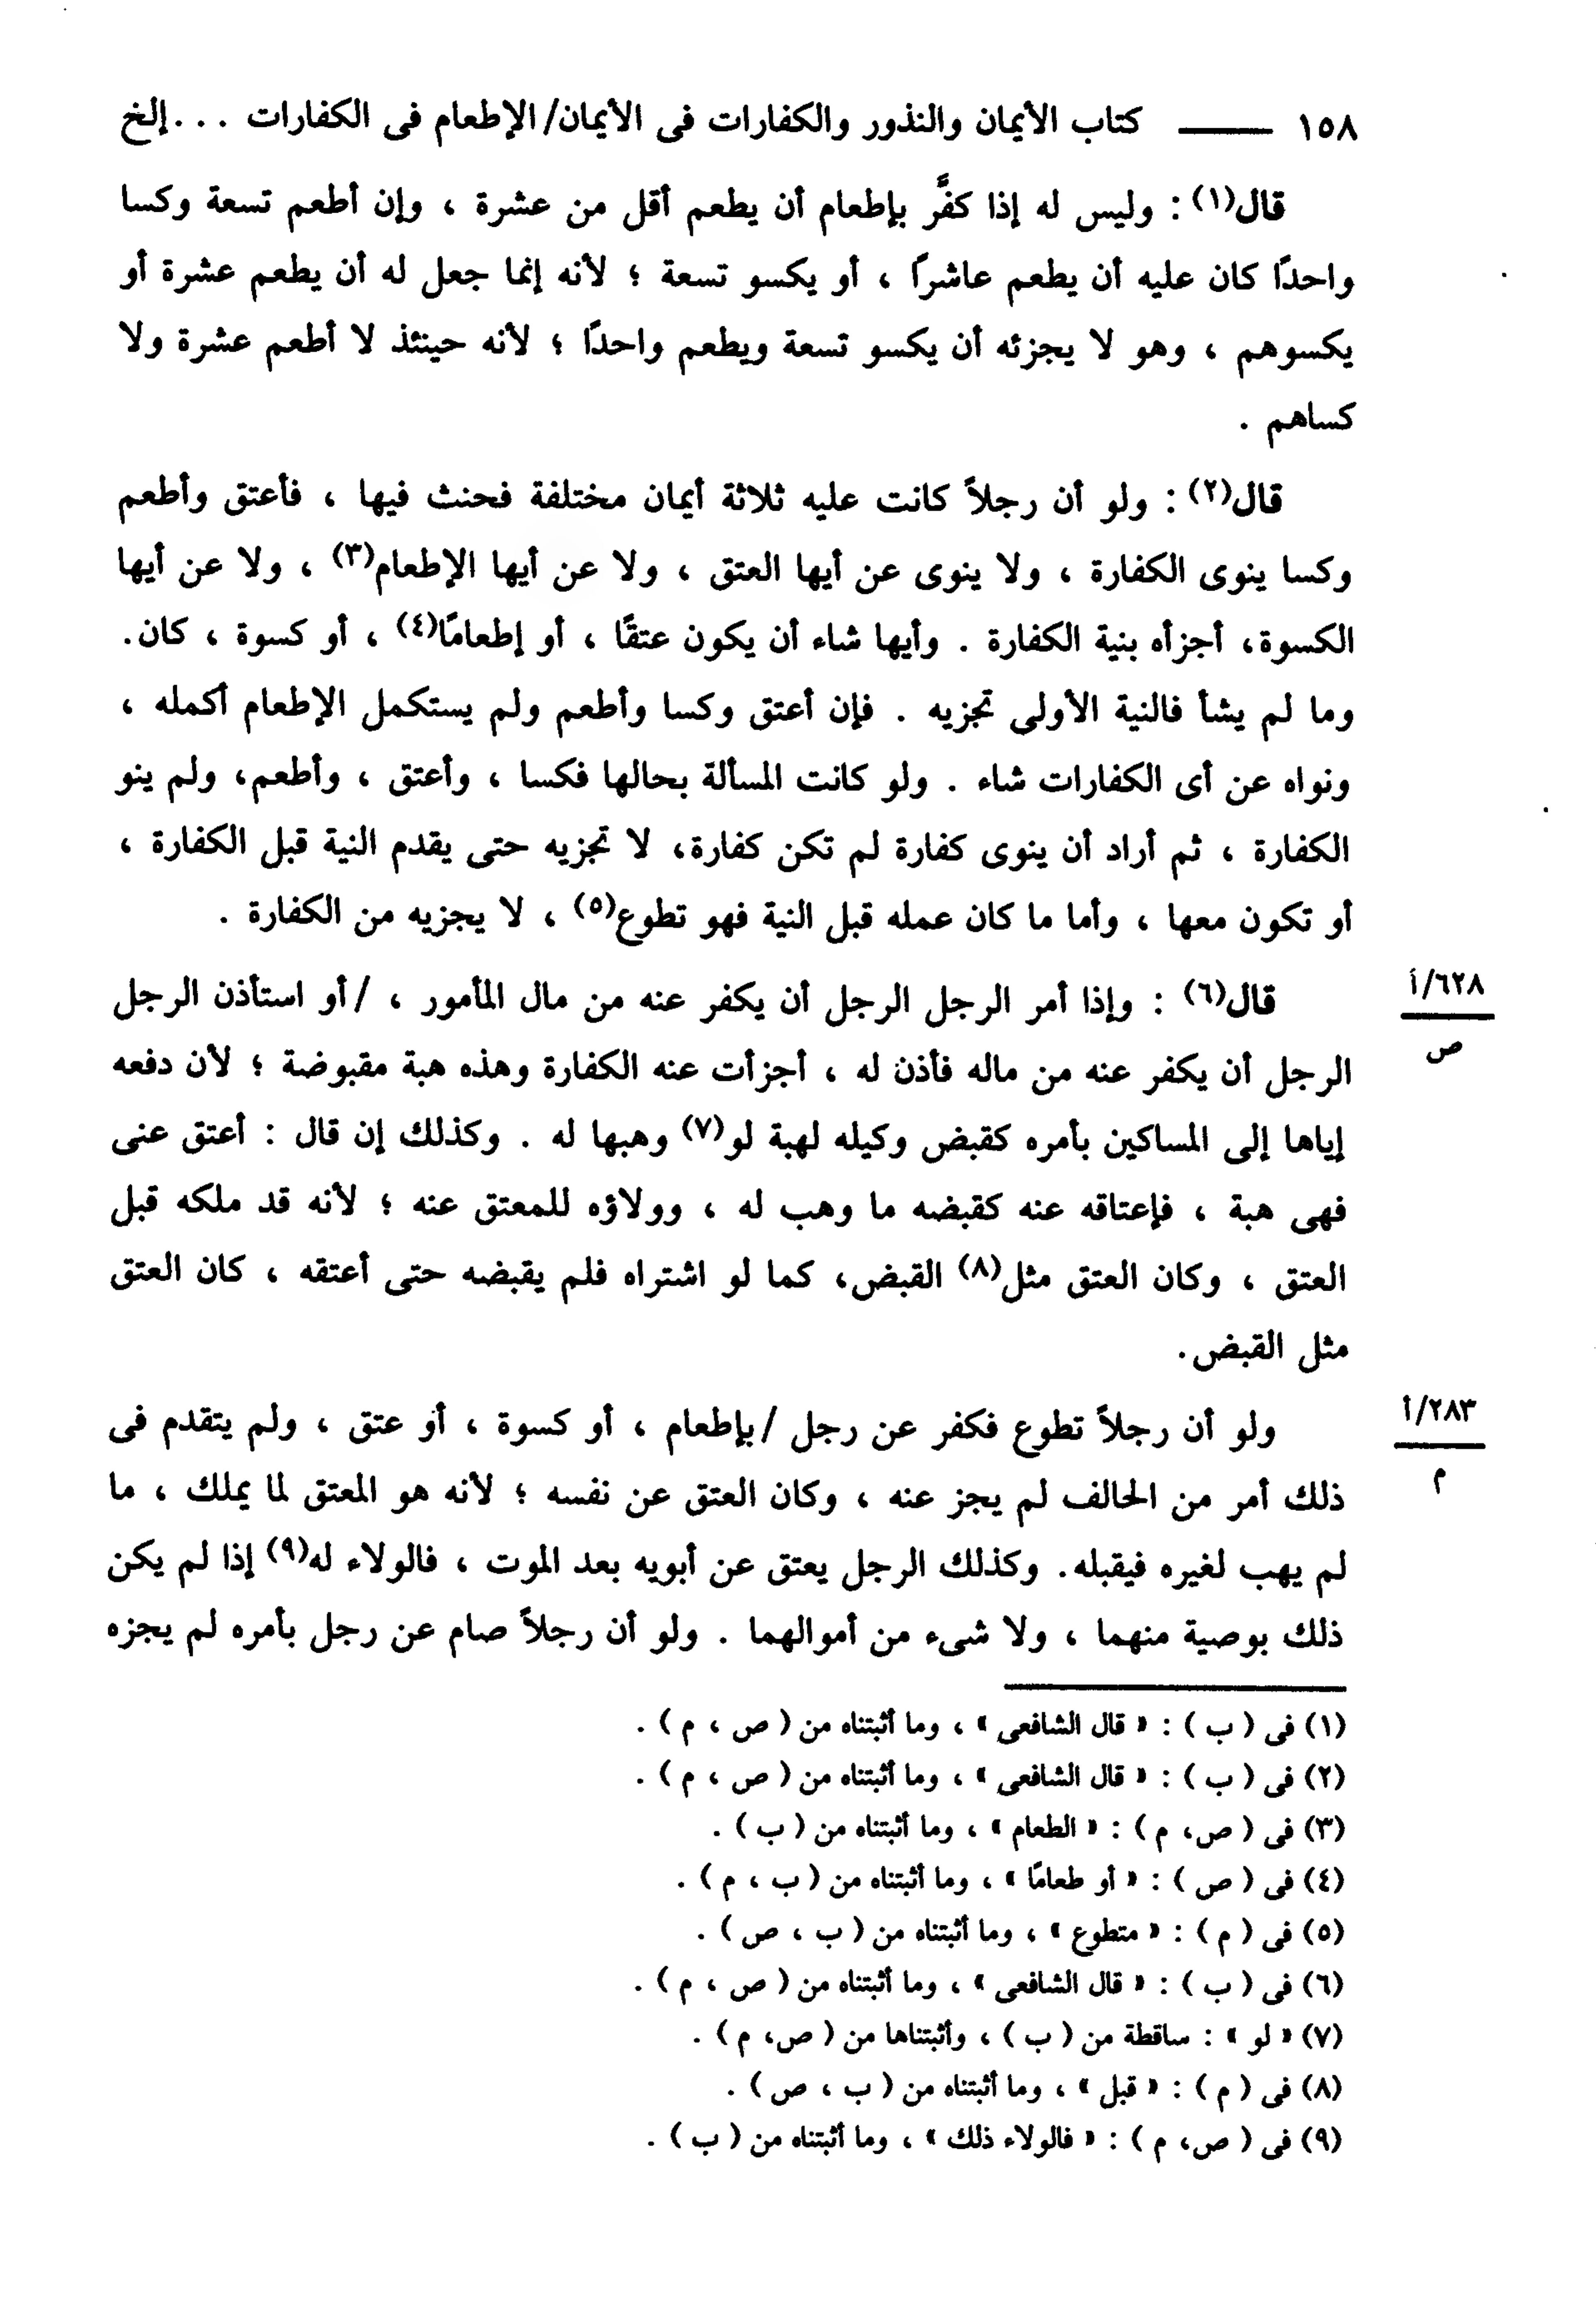 ١٥٨ ــــــ كتاب الأيمان والنذور والكفارات فى الأيمان/الإطعام فى الكفارات . . .إلخ
قال(١) : وليس له إذا كفَّر بإطعام أن يطعم أقل من عشرة ، وإن أطعم تسعة وكسا
واحدًا كان عليه أن يطعم عاشرًا ، أو يكسو تسعة ؛ لأنه إنما جعل له أن يطعم عشرة أو
يكسوهم ، وهو لا يجزئه أن يكسو تسعة ويطعم واحدًا ؛ لأنه حينئذ لا أطعم عشرة ولا
كساهم .
قال(٢) : ولو أن رجلاً كانت عليه ثلاثة أيمان مختلفة فحنث فيها ، فأعتق وأطعم
وكسا ينوى الكفارة ، ولا ينوى عن أيها العتق ، ولا عن أيها الإطعام(٣) ، ولا عن أيها
الكسوة، أجزأه بنية الكفارة . وأيها شاء أن يكون عتقًا ، أو إطعامًا(٤) ، أو كسوة ، كان.
وما لم يشأ فالنية الأولى تجزيه . فإن أعتق وكسا وأطعم ولم يستكمل الإطعام أكمله ،
ونواه عن أى الكفارات شاء . ولو كانت المسألة بحالها فكسا ، وأعتق ، وأطعم، ولم ينو
الكفارة ، ثم أراد أن ينوى كفارة لم تكن كفارة، لا تجزيه حتى يقدم النية قبل الكفارة ،
أو تكون معها ، وأما ما كان عمله قبل النية فهو تطوع(٥) ، لا يجزيه من الكفارة .
قال(٦) : وإذا أمر الرجل الرجل أن يكفر عنه من مال المأمور ، /أو استأذن الرجل
٦٢٨/أ
ص
الرجل أن يكفر عنه من ماله فأذن له ، أجزأت عنه الكفارة وهذه هبة مقبوضة ؛ لأن دفعه
إياها إلى المساكين بأمره كقبض وكيله لهبة لو(٧) وهبها له . وكذلك إن قال : أعتق عنى
فهى هبة ، فإعتاقه عنه كقبضه ما وهب له ، وولاؤه للمعتق عنه ؛ لأنه قد ملكه قبل
العتق ، وكان العتق مثل(٨) القبض، كما لو اشتراه فلم يقبضه حتى أعتقه ، كان العتق
مثل القبض.
ولو أن رجلاً تطوع فكفر عن رجل /بإطعام ، أو كسوة ، أو عتق ، ولم يتقدم فى
٢٨٣/أ
م
ذلك أمر من الحالف لم يجز عنه ، وكان العتق عن نفسه ؛ لأنه هو المعتق لما يملك ، ما
لم يهب لغيره فيقبله. وكذلك الرجل يعتق عن أبويه بعد الموت ، فالولاء له(٩) إذا لم يكن
ذلك بوصية منهما ، ولا شىء من أموالهما . ولو أن رجلاً صام عن رجل بأمره لم يجزه
(١) فى ( ب ) : « قال الشافعى » ، وما أثبتناه من ( ص ، م ) .
(٢) فى ( ب ) : « قال الشافعى » ، وما أثبتناه من ( ص ، م ) .
(٣) فى ( ص، م ) : « الطعام » ، وما أثبتناه من ( ب ) .
(٤) فى ( ص ) : « أو طعامًا » ، وما أثبتناه من ( ب ، م ) .
(٥) فى ( م ) : « متطوع » ، وما أثبتناه من ( ب ، ص ) .
(٦) فى ( ب ) : « قال الشافعى » ، وما أثبتناه من ( ص ، م ) .
(٧) « لو » : ساقطة من ( ب ) ، وأثبتناها من ( ص، م ) .
(٨) فى ( م ) : « قبل » ، وما أثبتناه من ( ب ، ص ) .
(٩) فى ( ص، م ) : « فالولاء ذلك » ، وما أثبتناه من ( ب ) .